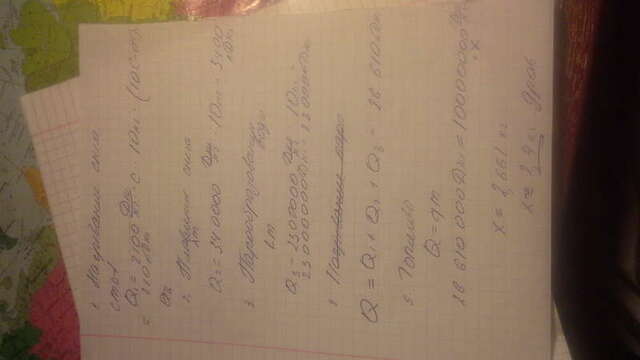 1. Нагревание снега
cmΔt
Q₁ = 2100 Дж/кг·С · 10кг · (10С-0С)
= 210 кДж
2. Плавление снега
λm
Q₂ = 340000 Дж/кг · 10кг = 3400
кДж
3. Парообразование
воды
Lm
Q₃ = 2300000 Дж/кг · 10кг =
23000000Дж = 23000кДж
4. Нагревание пара
Q = Q₁ + Q₂ + Q₃ = 26 610 кДж
5. Топливо
Q = qm
26 610 000 Дж = 10000000 Дж/кг
· x
x = 2,661 кг
x ≈ кг дров